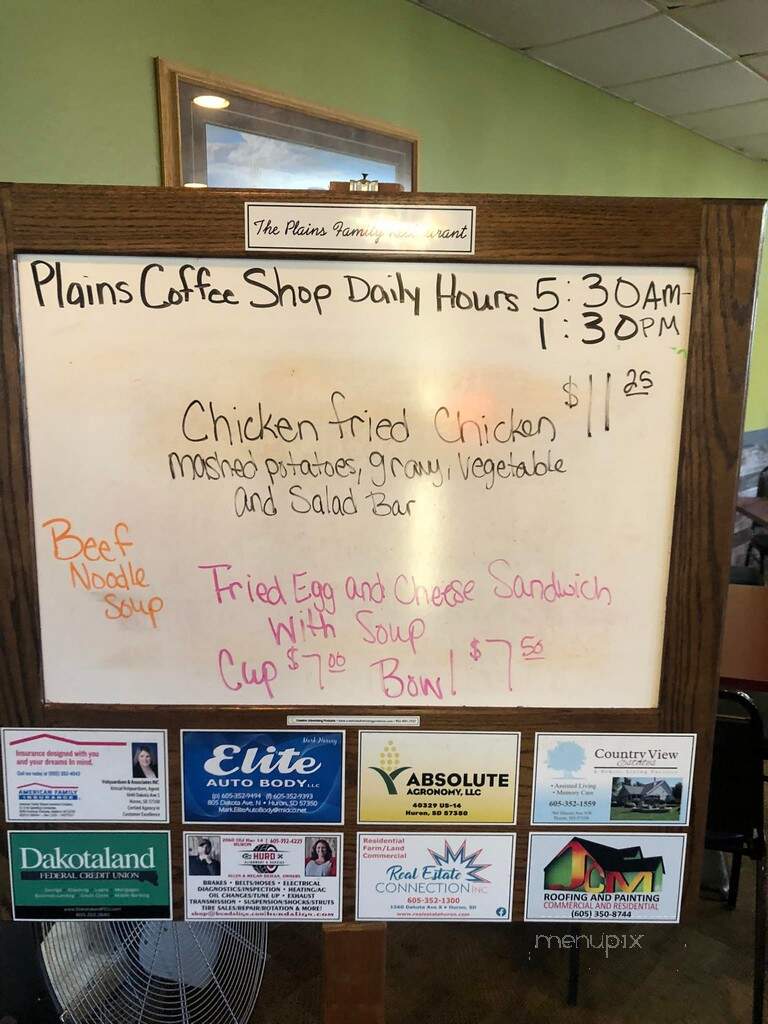 The Plains Family
Plains Coffee Shop Daily Hours 5:30AM-
1:30PM
Chicken fried Chicken $11 25
mashed potatoes, gravy, vegetable
and Salad Bar
Beef
Noodle
Soup
Fried Egg and Cheese Sandwich
with Soup
Cup $7 00 Bowl $7 50
Insurance designed with you
and your dreams in mind.
AMERICAN FAMILY
INSURANCE
Mark Harvey
Elite
AUTO BODY LLC
(p) 605-352-9494 (f) 605-352-9393
805 Dakota Ave. N • Huron, SD 57350
Mark.EliteAutoBody@midco.net
ABSOLUTE
AGRONOMY, LLC
40329 US-14
Huron, SD 57350
Country View
• Assisted Living
• Memory Care
605-352-1559
Dakotaland
FEDERAL CREDIT UNION
HURON
HURO
BRAKES • BELTS/HOSES • ELECTRICAL
DIAGNOSTICS/INSPECTION • HEATING/AC
OIL CHANGES/TUNE UP • EXHAUST
TRANSMISSION • SUSPENSION/SHOCKS/STRUTS
TIRE SALES/REPAIR/ROTATION & MORE!
Residential
Farm/Land
Commercial
Real Estate
CONNECTION INC
605-352-1300
www.realestatehuron.com
JCM
ROOFING AND PAINTING
COMMERCIAL AND RESIDENTIAL
(605) 350-8744
menupix